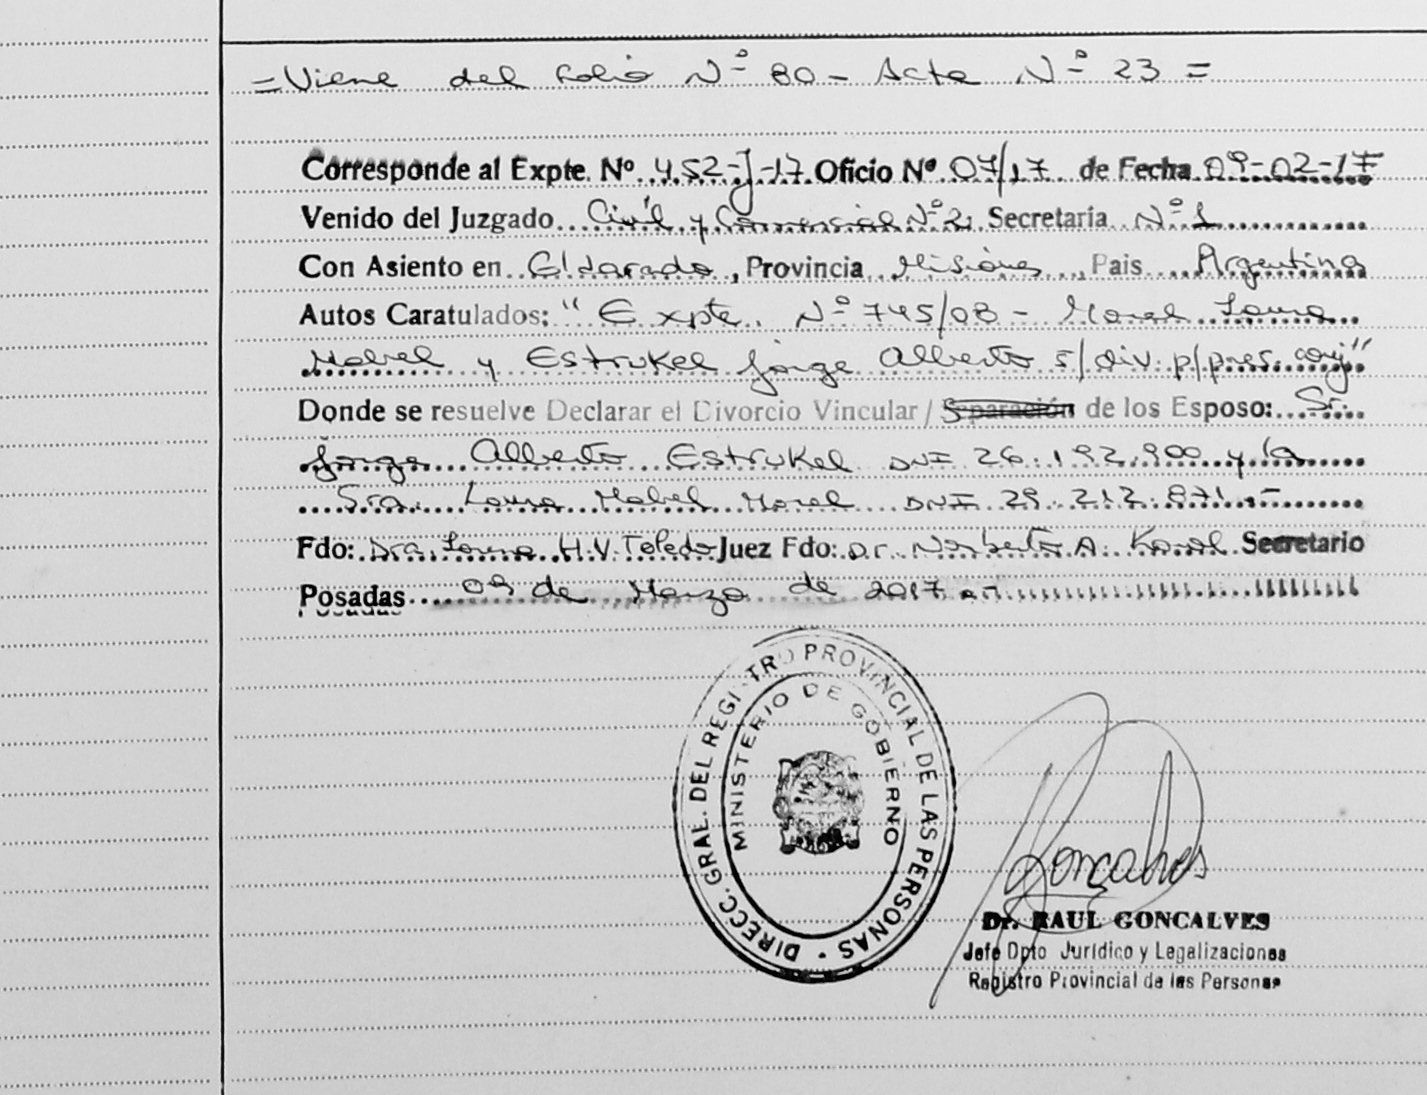 = Viene del Folio Nº 80 - Acta Nº 23 =
Corresponde al Expte. Nº 452-J-17 Oficio Nº 07/17 de Fecha 09-02-17
Venido del Juzgado Civil y Comercial Nº 2, Secretaria Nº 1
Con Asiento en Eldorado, Provincia Misiones, Pais Argentina
Autos Caratulados: "Expte. Nº 745/08 - Morel Laura
Mabel y Estrukel Jorge Alberto s/ div. p/ pres. conj"
Donde se resuelve Declarar el Divorcio Vincular / Separación de los Esposo: Sr.
Jorge Alberto Estrukel DNI 26.192.900 y la
Sra. Laura Mabel Morel DNI 29.212.871.-
Fdo: Dra. Laura H.V. Toledo Juez Fdo: Dr. Norberto A. Secretario
Posadas 09 de Marzo de 2017.-
DIRECC. GRAL. DEL REGISTRO PROVINCIAL DE LAS PERSONAS
MINISTERIO DE GOBIERNO
Goncalves
Dr. RAUL GONCALVES
Jefe Dpto Jurídico y Legalizaciones
Registro Provincial de las Personas